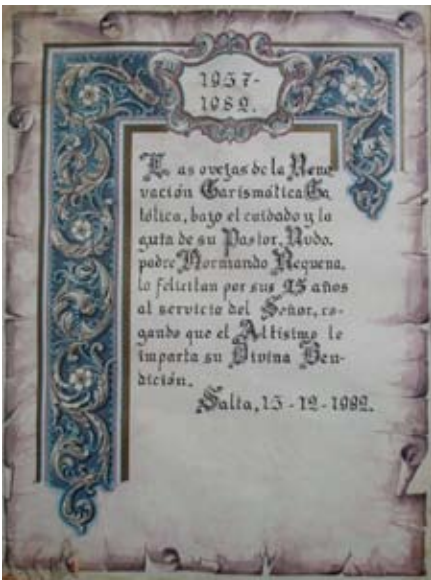 1957-
1982.
Las ovejas de la Reno
vación Carismática Ca
tólica, bajo el cuidado y la
guía de su Pastor, Rvdo.
padre Normando Requena,
lo felicitan por sus 25 años
al servicio del Señor, ro-
gando que el Altísimo le
imparta su Divina Ben-
dición.
Salta, 15-12-1982.